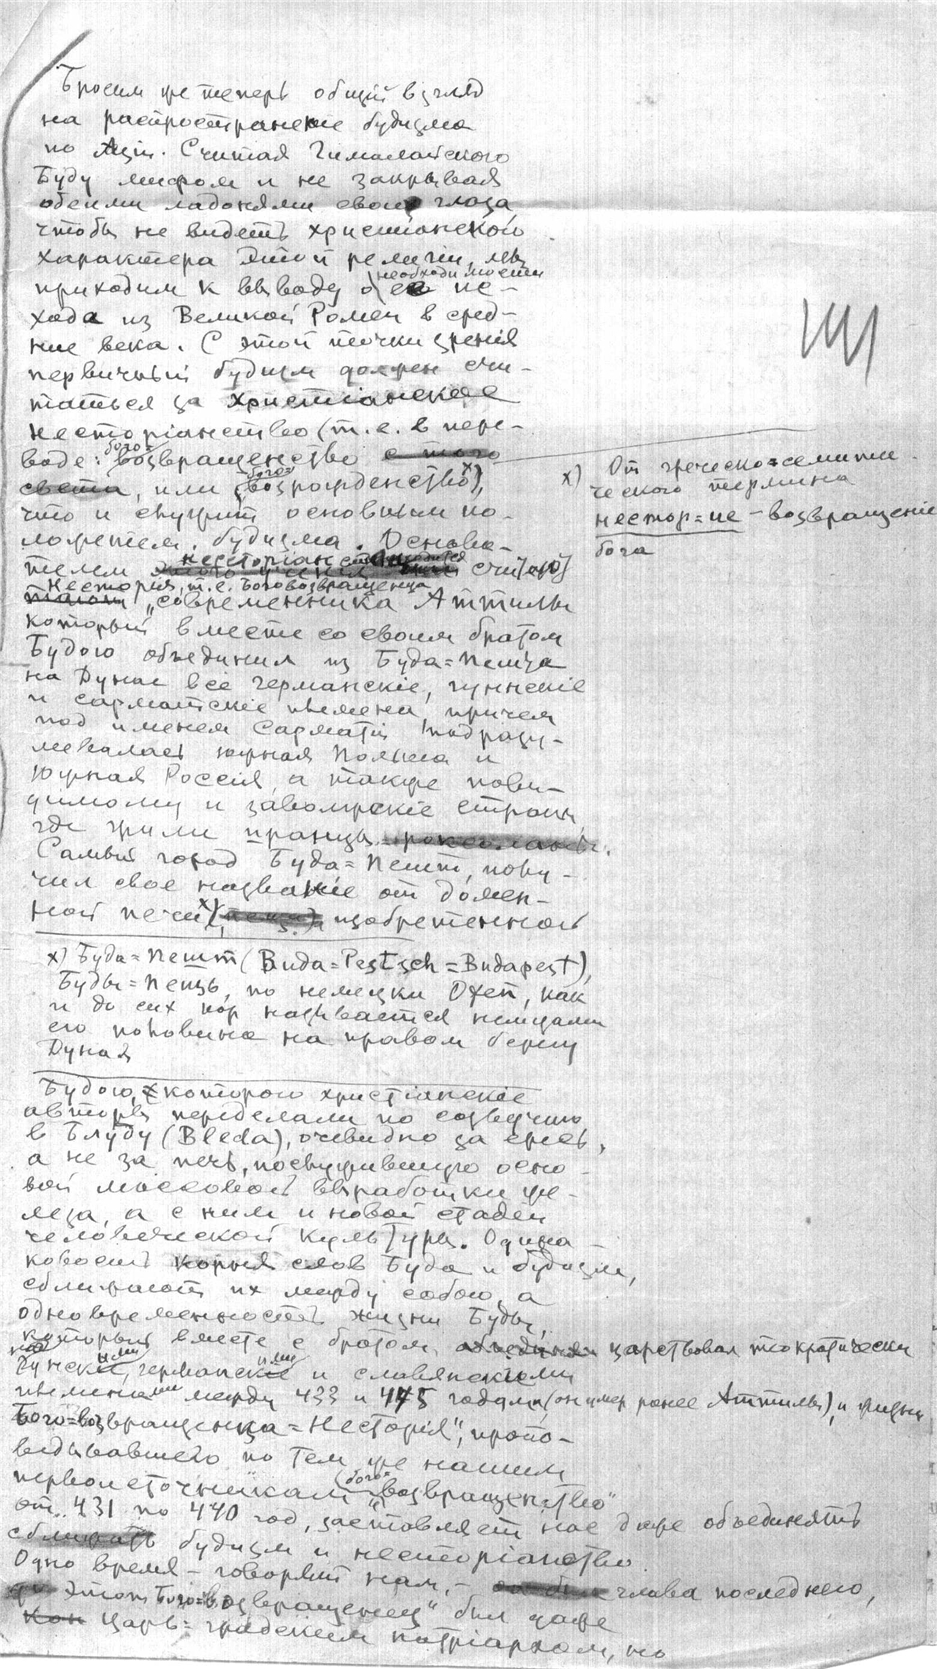 Бросим же теперь общий взгляд
на распространение будизма
по Азіи. Считая Гималайского
Буду мифом и не закрывая
обеими ладонями свои глаза
чтобы не видеть христианского
характера этой религіи, мы
приходим к выводу о необходимости ее ис-
хода из Великой Ромеи в сред-
ние века. С этой точки зренія
первичный будизм должен счи-
таться за христіанское
несторіанство (т. е. в пере-
воде: бого=возвращенство с того
света, или бого=возрожденство x),
что и служит основным по-
ложением будизма. Основа-
телем несторіанства считают
Несторія, т.е. Боговозвращенца
современника Аттилы
который вместе со своим братом
Будою объединил из Буда=Пешта
на Дунае все германскіе, гуннскіе
и сарматскіе племена, причем
под именем Сарматіи подразу-
мевалась южная Польша и
южная Россія, а также пови-
димому и заволжскіе страны
где жили иранцы
Самый город Буда=Пешт, полу-
чил свое названіе от домен-
ной печи x) изобретенной
x) Буда=Пешт (Buda=Pestsch=Budapest),
Буды=Пещь, по немецки Ofen, как
и до сих пор называется немцами
его половина на правом берегу
Дуная
Будою, которого христіанскіе
авторы переделали по созвучию
в Блуду (Bleda), очевидно за ересь,
а не за печь, послужившую осно-
вой массовой выработки же-
леза, а с ним и новой стадіи
человеческой культуры. Одина-
ковость корня слов Буда и будизм,
сближают их между собою, а
одновременность жизни Буды,
который вместе с братом царствовал теократически
над гунскими, германскими и славянскими
племенами между 433 и 445 годами (он умер ранее Аттилы), и жизни
Бого=возвращенца=Несторія", пропо-
ведывавшего по тем же нашим
первоисточникам "бого=возвращенство"
от 431 по 440 год, заставляет нас даже объединять
сближать будизм и несторіанство
Одно время – говорят нам, – глава последнего,
этот Бого=возвращенец" был даже
царь=градским патріархом, но
x) От греческо=семити-
ческого термина
нестор=ие – возвращеніе
бога